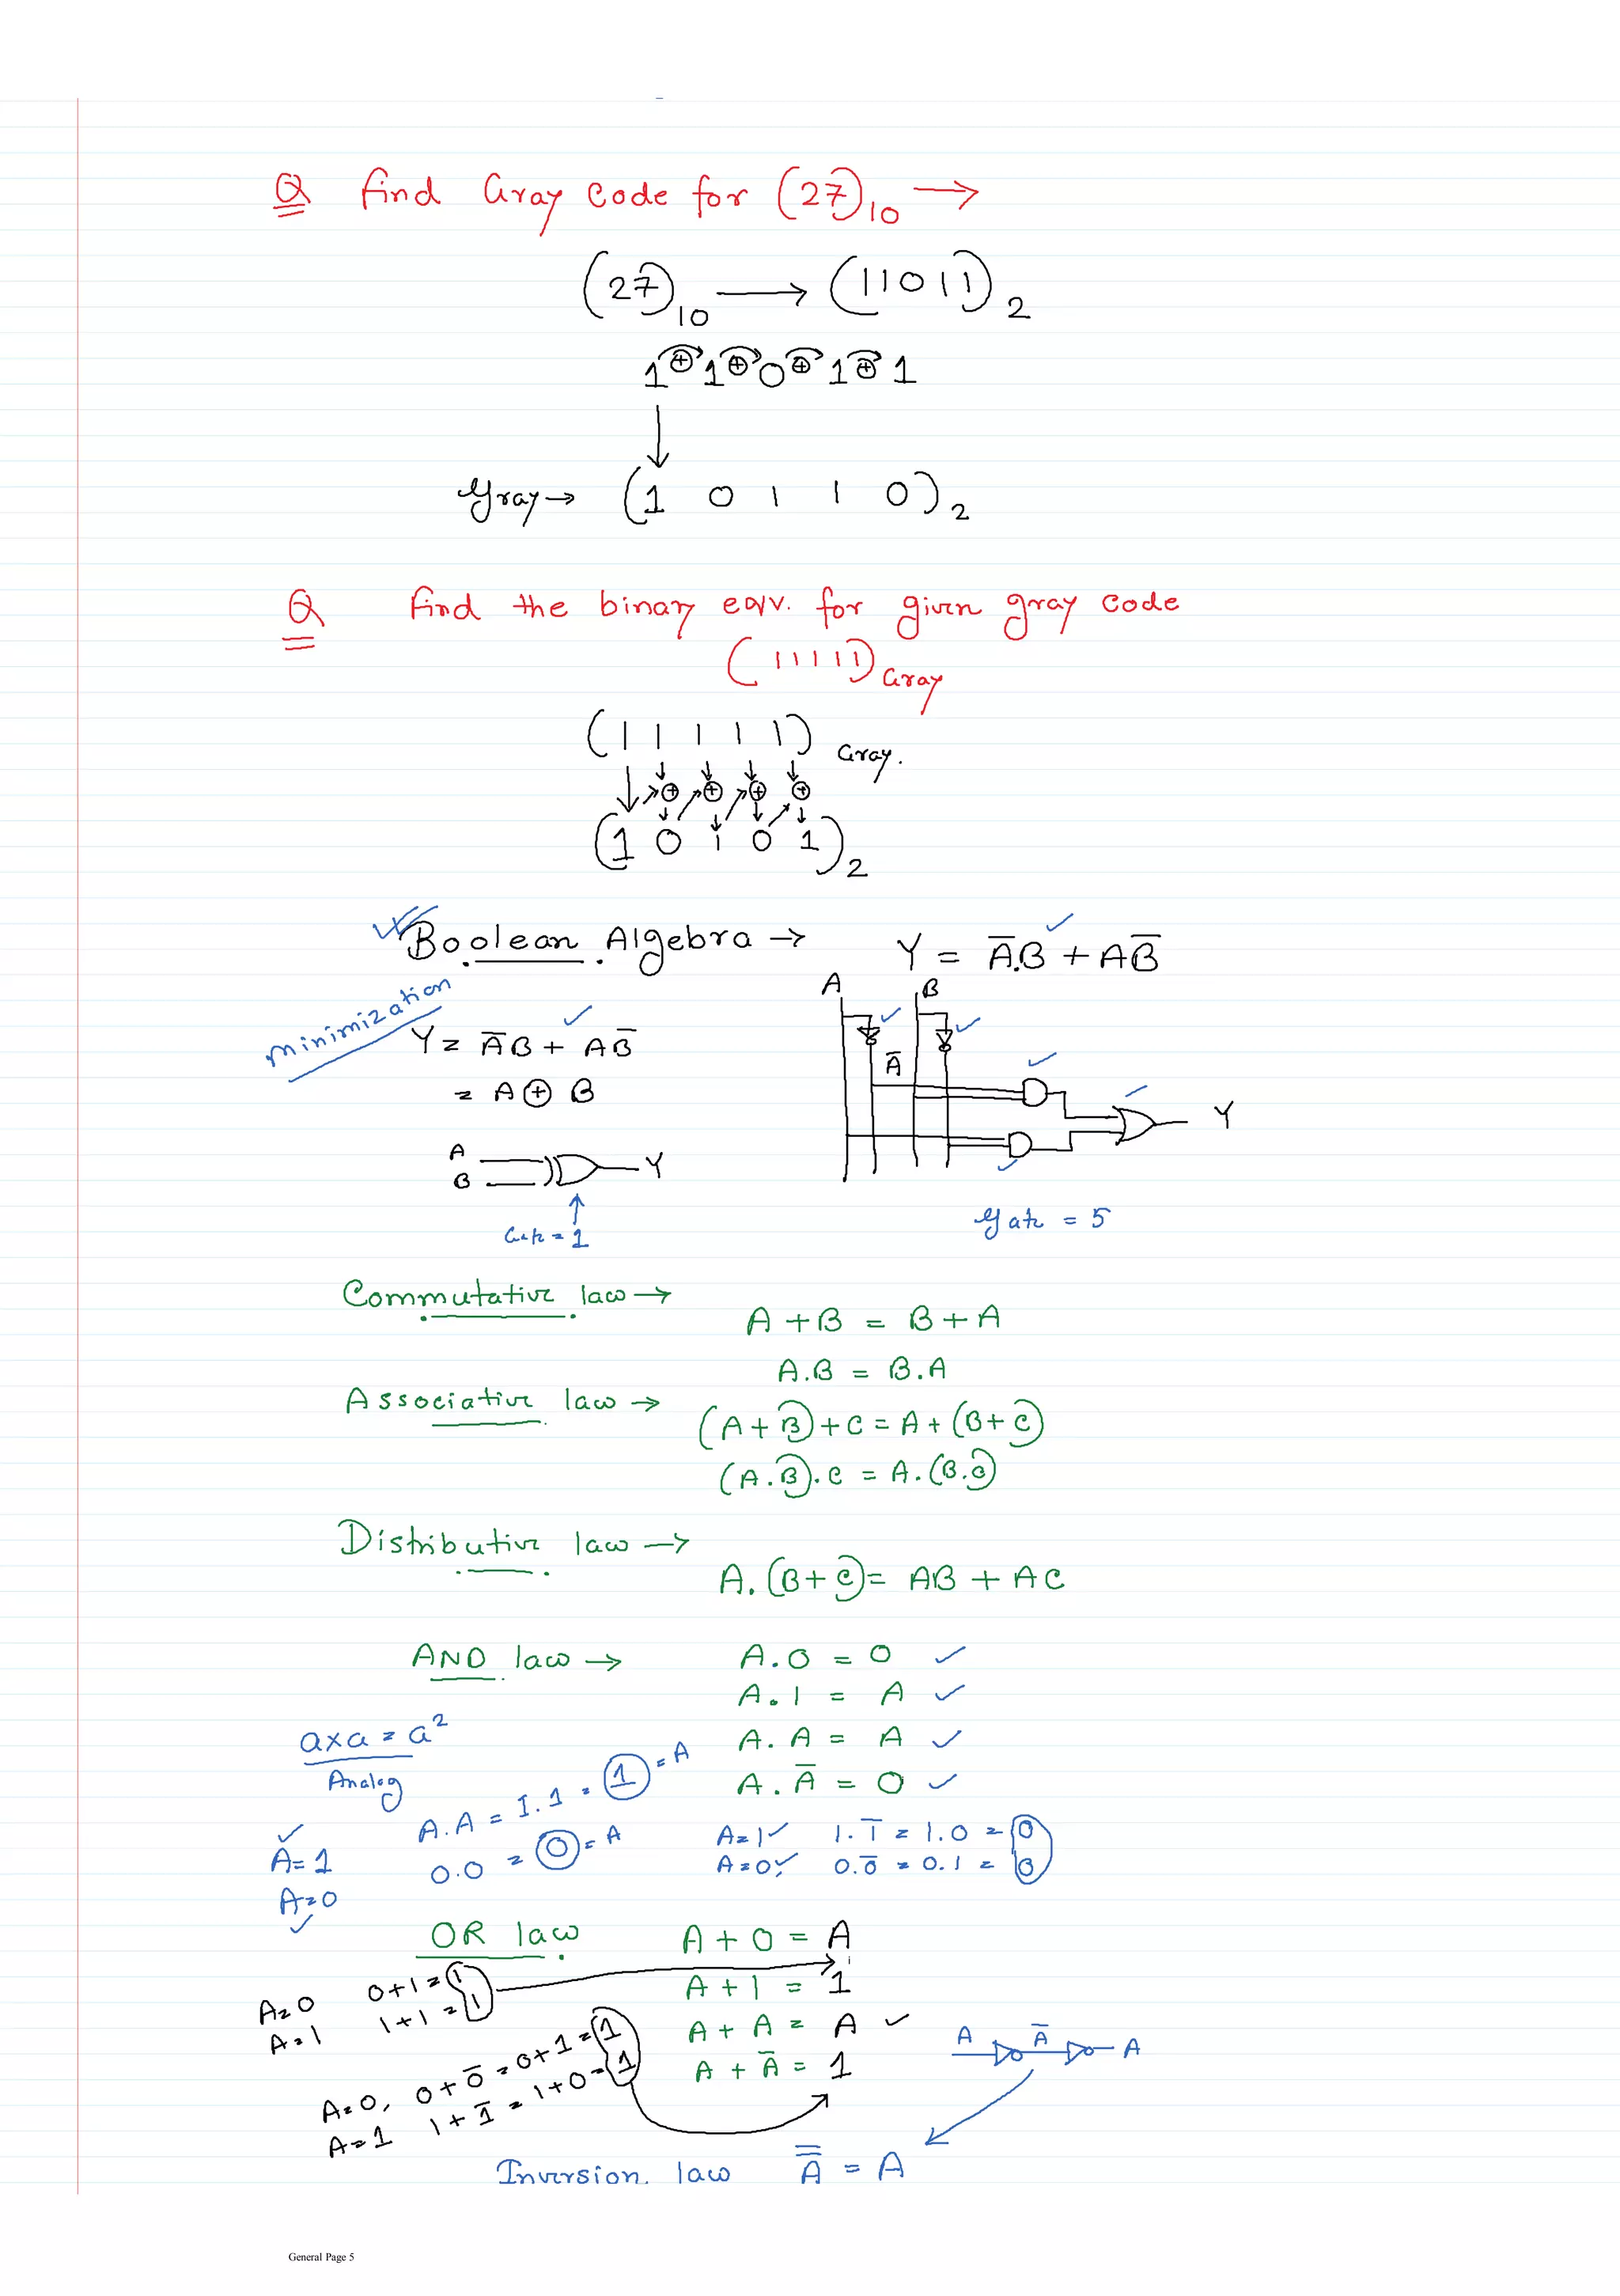 Q Find Gray Code for (27)10 →
(27)10 → (11011)2
1 ⊕ 1 ⊕ 0 ⊕ 1 ⊕ 1
Gray → (1 0 1 1 0)2
Q Find the binary eqv. for given gray code
(11111)Gray
(1 1 1 1 1) Gray.
⊕ ⊕ ⊕ ⊕
(1 0 1 0 1)2
Boolean Algebra →
Y = A̅.B + AB̅
minimization
Y = A̅B + AB̅
= A ⊕ B
A
B
Y
Gate = 1
A
B
A̅
Y
Gate = 5
Commutative law →
A + B = B + A
A.B = B.A
Associative law →
(A + B) + C = A + (B + C)
(A.B).C = A.(B.C)
Distributive law →
A.(B + C) = AB + AC
AND law →
A.0 = 0 ✓
A.1 = A ✓
A.A = A ✓
A.A̅ = 0 ✓
a×a = a²
Analog
A.A = 1.1 = 1 = A
0.0 = 0 = A
A=1
A=0
A=1 ✓ 1.1̅ = 1.0 = 0
A=0 ✓ 0.0̅ = 0.1 = 0
OR law
A + 0 = A
A + 1 = 1
A + A = A ✓
A + A̅ = 1
A=0 0+1=1
A=1 1+1=1
A=0, 0+0̅=0+1=1
A=1 1+1̅=1+0=1
A A̅ A
Inversion. law A̿ = A
General Page 5